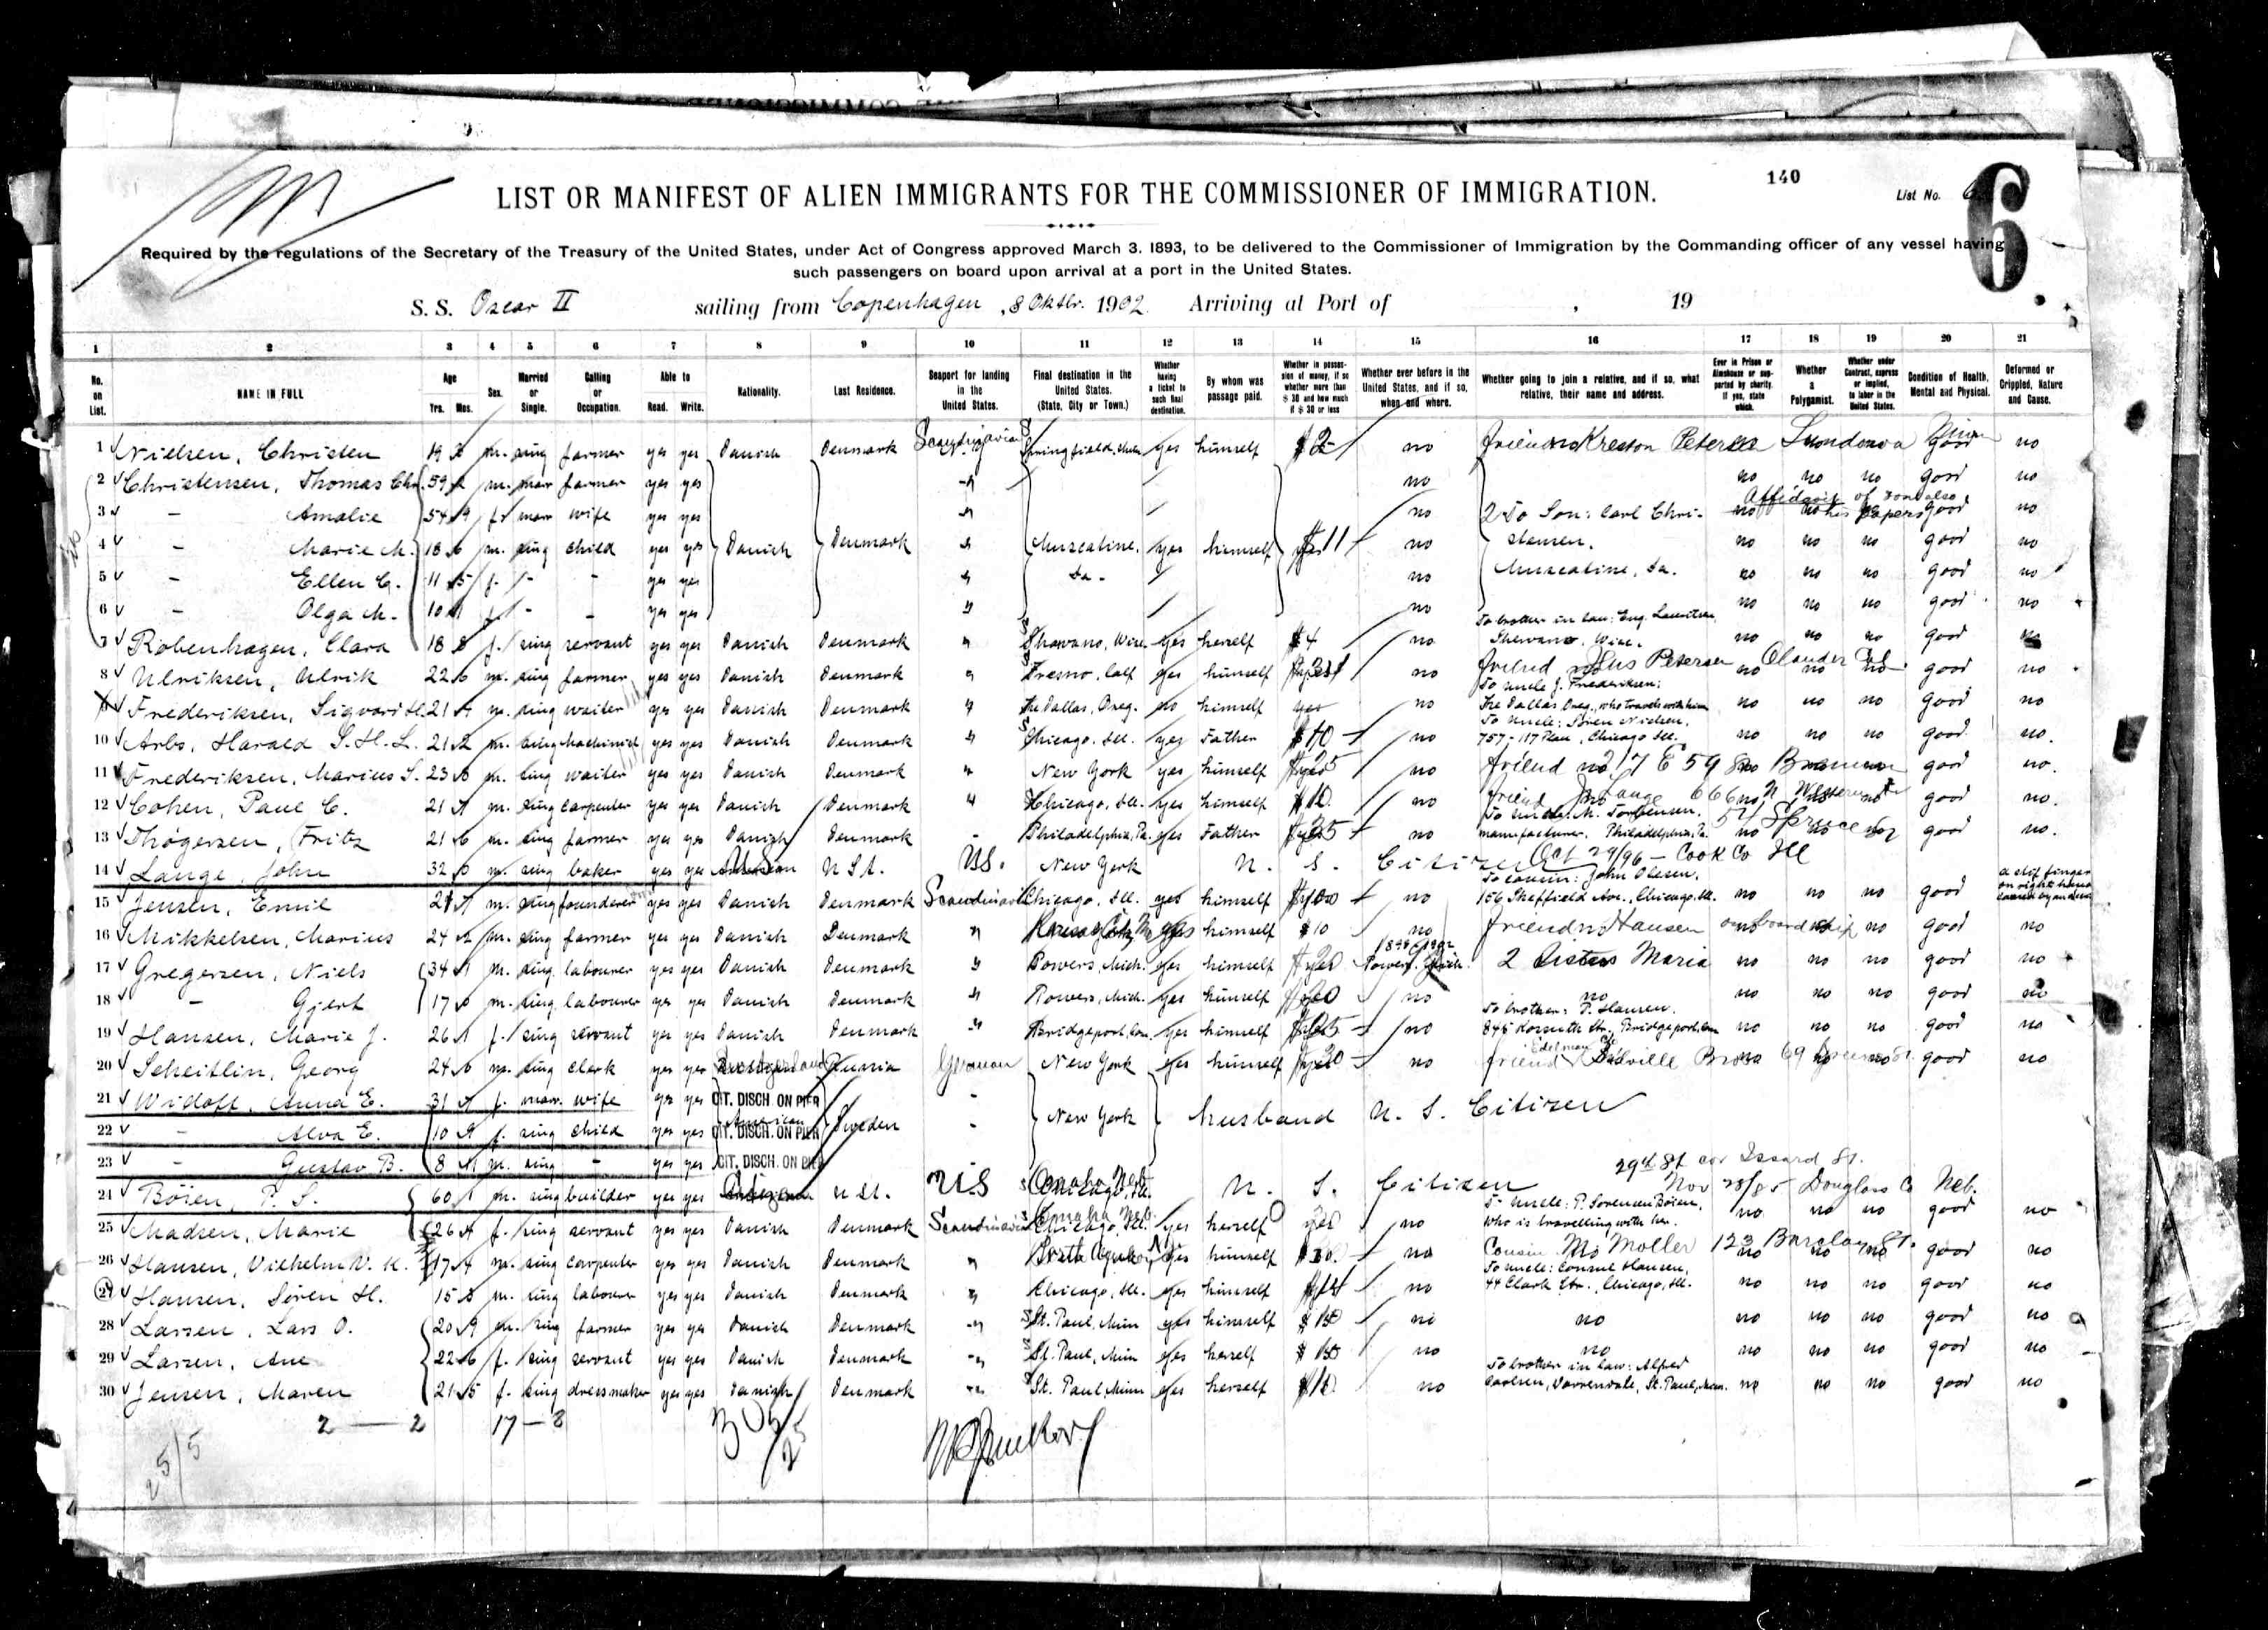 140
List No. 6
6
LIST OR MANIFEST OF ALIEN IMMIGRANTS FOR THE COMMISSIONER OF IMMIGRATION.
Required by the regulations of the Secretary of the Treasury of the United States, under Act of Congress approved March 3. 1893, to be delivered to the Commissioner of Immigration by the Commanding officer of any vessel having
such passengers on board upon arrival at a port in the United States.
S. S. Oscar II sailing from Copenhagen, 8 Oktbr. 1902. Arriving at Port of , 19
1 2 3 4 5 6 7 8 9 10 11 12 13 14 15 16 17 18 19 20 21
No. on List. NAME IN FULL Age Yrs. Mos. Sex. Married or Single. Calling or Occupation. Able to Read. Write. Nationality. Last Residence. Seaport for landing in the United States. Final destination in the United States. (State, City or Town.) Whether having a ticket to such final destination. By whom was passage paid. Whether in possession of money, if so whether more than $ 30 and how much if $ 30 or less Whether ever before in the United States, and if so, when and where. Whether going to join a relative, and if so, what relative, their name and address. Ever in Prison or Almshouse or supported by charity. If yes, state which. Whether a Polygamist. Whether under Contract, express or implied, to labor in the United States. Condition of Health, Mental and Physical. Deformed or Crippled, Nature and Cause.
1 Nielsen, Christen 19 m. sing farmer yes yes Danish Denmark Scandinavian yes himself $2 no friend Kreston Petersen good no
2 Christensen, Thomas Chr. 59 m. marr farmer yes yes no no no no good no
3 - Amalie 54 9 f. marr wife yes yes no 2 To Son: Carl Chri- Affidavit of son also no good no
4 - Marie M. 18 6 m. sing child yes yes Danish Denmark Muscatine, yes himself $11 no stensen. no no no good no
5 - Ellen C. 11 5 f. - - yes yes Ia - no Muscatine, Ia. no no no good no
6 - Olga M. 10 f. - - yes yes no no no no good no
To brother in law: Eug. Lauritzen
7 Robenhagen, Clara 18 8 f. sing servant yes yes Danish Denmark Shawano, Wisc. yes herself $4 no Shawano, Wisc. no no no good
8 Ulriksen, Ulrik 22 m. sing farmer yes yes Danish Denmark Fresno, Calf yes himself no friend Petersen no no no good no
To uncle J. Frederiksen:
9 Frederiksen, Sigvard 21 m. sing waiter yes yes Danish Denmark The Dallas, Oreg. no himself yes no The Dallas Oreg., who travels with him no no no good no
To uncle: Sören Nielsen,
10 Arbo, Harald S. H. L. 21 2 m. sing machinist yes yes Danish Denmark Chicago, Ill. yes Father $10 no 757 - 117 Place, Chicago Ill. no no no good no.
11 Frederiksen, Marius S. 23 m. sing waiter yes yes Danish Denmark New York yes himself 25 no friend 217 E 59 good no.
12 Cohen, Paul C. 21 m. sing carpenter yes yes Danish Denmark Chicago, Ill. yes himself $10 no friend Lange 666 N. Western good no.
To uncle, M. Torbensen,
13 Thögersen, Fritz 21 6 m. sing farmer yes yes Danish Denmark - Philadelphia, Pa. yes Father 25 no manufacturer, Philadelphia, Pa. Spruce no good no.
14 Lange, John 32 m. sing baker yes yes U S A. US. New York U. S. Citizen Oct 29/96 - Cook Co Ill
To cousin: John Olesen,
15 Jensen, Emil 21 m. sing founderer yes yes Danish Denmark Scandinavian Chicago, Ill. yes himself no 156 Sheffield Ave., Chicago, Ill. no no no good a stif finger on right hand
16 Mikkelsen, Marius 24 m. sing farmer yes yes Danish Denmark Kansas City, Mo yes himself $10 no friend Hansen on board ship no good no
17 Gregersen, Niels 34 m. sing. labourer yes yes Danish Denmark Powers, Mich. yes himself 1898-1902 Powers, Mich. 2 Sisters Maria no no no good no
18 - Gjert 17 m. sing. labourer yes yes Danish Denmark Powers, Mich. yes himself no no no no no good no
To brother: P. Hansen.
19 Hansen, Marie J. 26 f. sing servant yes yes Danish Denmark Bridgeport, Con. yes himself 25 no 845 Kossuth Str., Bridgeport, Con no no no good no
20 Scheitlin, Georg 24 m. sing clerk yes yes Switzerland Russia German New York yes himself 20 no friend Edelman good no
21 Widoff, Anna E. 31 f. marr. wife yes yes CIT. DISCH. ON PIER -
22 - Alva E. 10 9 f. sing child yes yes American CIT. DISCH. ON PIER Sweden - New York husband U. S. Citizen
23 - Gustav B. 8 m. sing - yes yes CIT. DISCH. ON PIER
29th St cor Issard St.
24 Böien, P. S. 60 m. sing builder yes yes U S A. US Omaha Neb. Chicago, Ill. U. S. Citizen Nov 28/85 Douglas Co Neb.
To uncle: P. Sorensen Böien,
25 Madsen, Marie 26 f. sing servant yes yes Danish Denmark Scandinavian Omaha Neb. Chicago, Ill. yes herself no who is travelling with her. no no no good no
26 Hansen, Vilhelm V. K. 17 m. sing carpenter yes yes Danish Denmark yes himself $30. no Cousin Moller 123 Barclay St. no no good no
To uncle: Consul Hansen,
27 Hansen, Sören H. 15 8 m. sing labourer yes yes Danish Denmark Chicago, Ill. yes himself no 44 Clark Str., Chicago, Ill. no no no good no
28 Larsen, Lars O. 20 9 m. sing farmer yes yes Danish Denmark St. Paul, Min yes himself no no no no no good no
29 Larsen, Ane 22 6 f. sing servant yes yes Danish Denmark St. Paul, Min yes herself no no no no no good no
To brother in law: Alfred
30 Jensen, Maren 21 5 f. sing dressmaker yes yes Danish Denmark St. Paul, Minn yes herself $10 no Carlsen, St. Paul, Minn. no no no good no
2 — 2 17 — 8
25/5